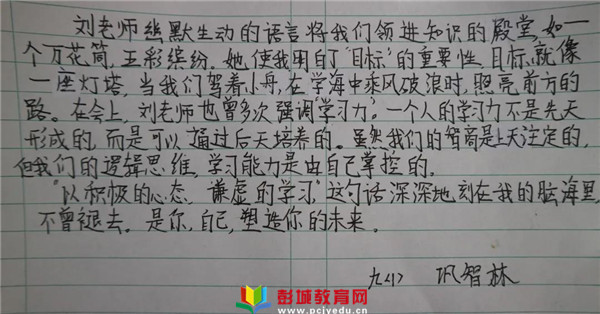 刘老师幽默生动的语言将我们领进知识的殿堂,如一
个万花筒,五彩缤纷.她使我明白了"目标"的重要性,目标,就像
一座灯塔,当我们驾着小舟,在学海中乘风破浪时,照亮前方的
路。在会上,刘老师也曾多次强调"学习力".一个人的学习力不是先天
形成的,而是可以通过后天培养的。虽然我们的智商是上天注定的,
但我们的逻辑思维,学习能力是由自己掌控的.
"以积极的心态,谦虚的学习"这句话深深地刻在我的脑海里,
不曾褪去。是你,自己,塑造你的未来。
九(1) 巩智林
彭城教育网
www.pcjyedu.cn